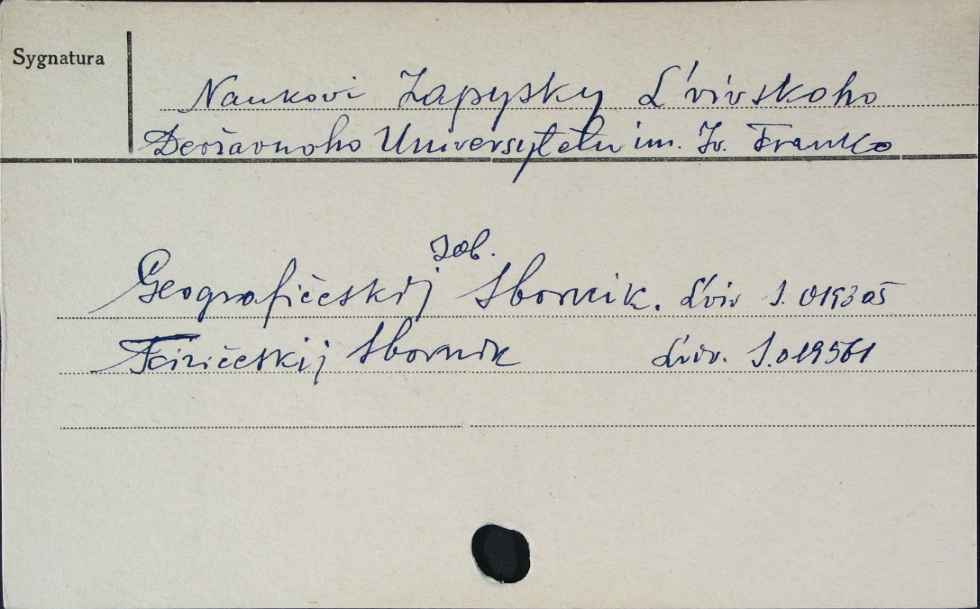 Sygnatura
Naukovi Zapysky L'vivskoho
Deržavnoho Universytetu im. Iv. Franko
Zob.
Geografičeskij Sbornik. L'viv S. 019305
Fizičeskij Sbornik L'viv. S. 019561